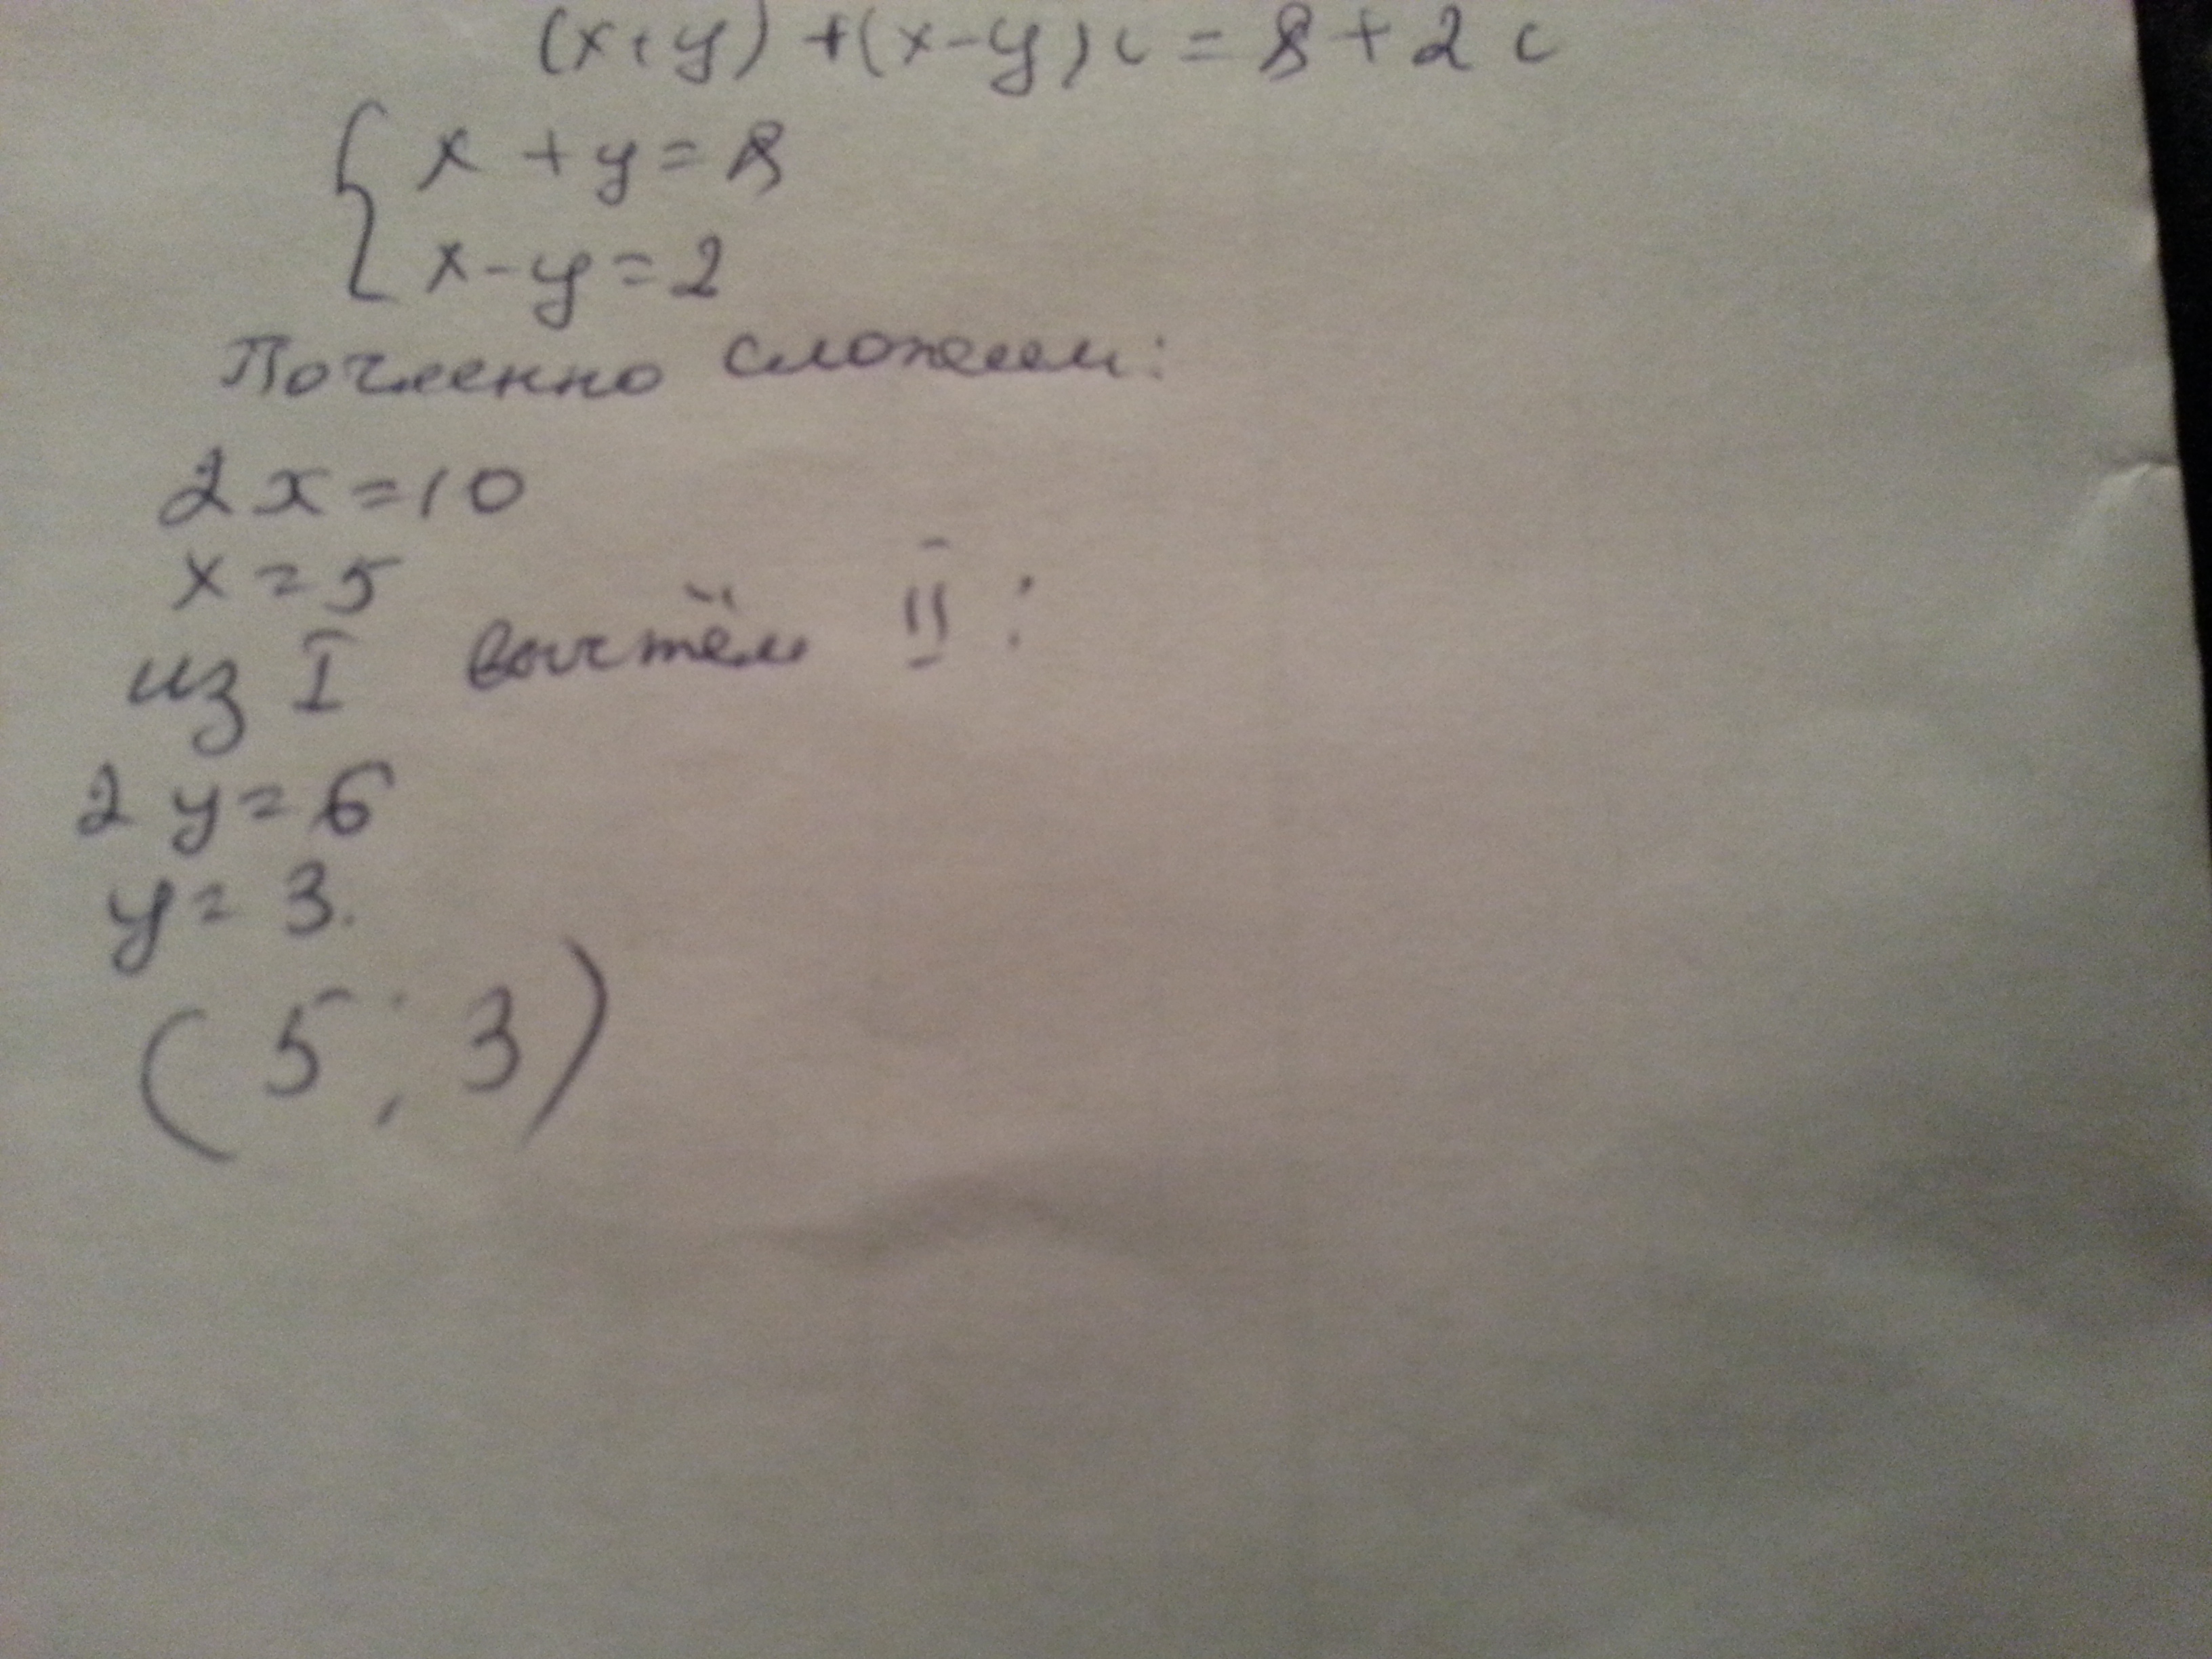 (x+y) + (x-y)i = 8 + 2i
{ x + y = 8
x - y = 2
Почленно сложим:
2x = 10
x = 5
из I вычтём II:
2y = 6
y = 3.
(5; 3)